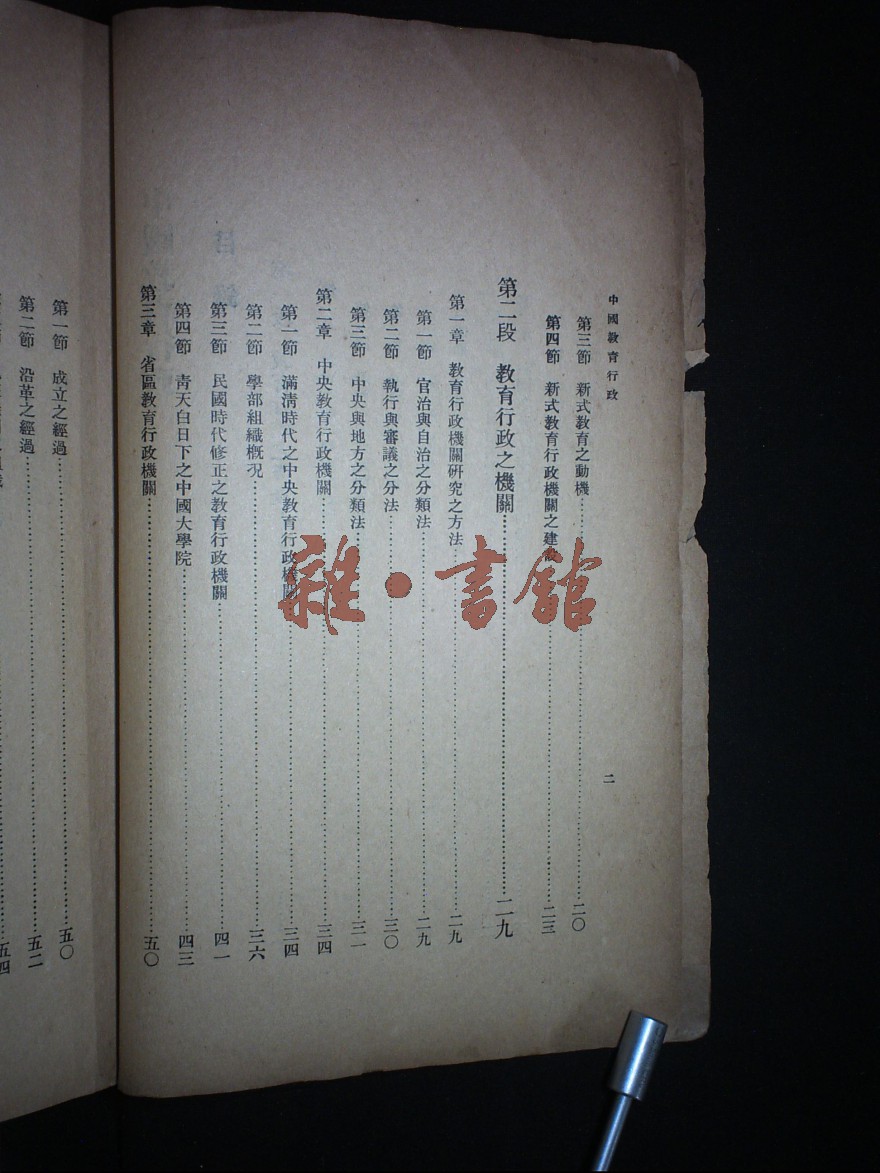 中國敎育行政
二
第三節　新式敎育之動機…二〇
第四節　新式敎育行政機關之建設…二三
第二段　敎育行政之機關…二九
第一章　敎育行政機關硏究之方法…二九
第一節　官治與自治之分類法…二九
第二節　執行與審議之分法…三〇
第三節　中央與地方之分類法…三一
第二章　中央敎育行政機關…三四
第一節　滿淸時代之中央敎育行政機關…三四
第二節　學部組織槪況…三六
第三節　民國時代修正之敎育行政機關…四一
第四節　靑天白日下之中國大學院…四三
第三章　省區敎育行政機關…五〇
第一節　成立之經過…五〇
第二節　沿革之經過…五二
五四
雜·書館